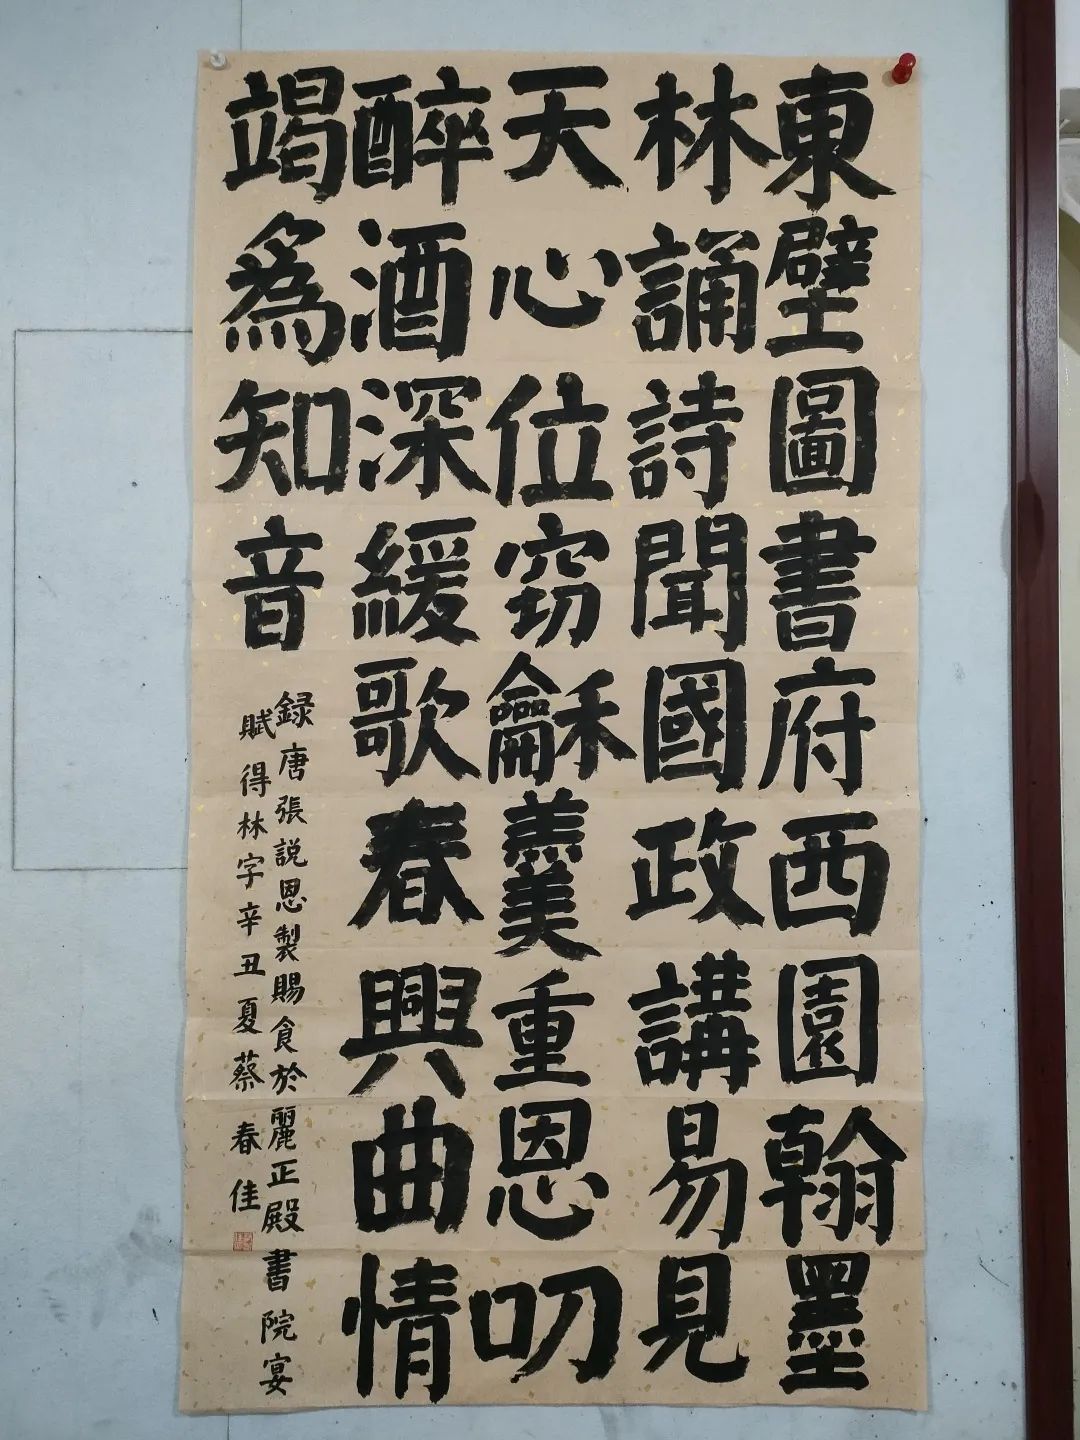 東壁圖書府西園翰墨
林誦詩聞國政講易見
天心位窃龢羹重恩叨
醉酒深緩歌春興曲情
竭爲知音
録唐張説恩製賜食於麗正殿書院宴
賦得林字辛丑夏蔡春佳